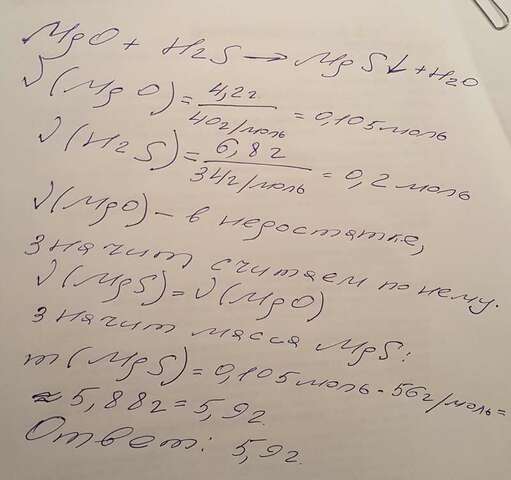 MgO + H2S → MgS↓ + H2O
ν(MgO) = 4,2г / 40г/моль = 0,105моль
ν(H2S) = 6,8г / 34г/моль = 0,2моль
ν(MgO) – в недостатке,
значит считаем по нему.
ν(MgS) = ν(MgO)
Значит масса MgS:
m(MgS) = 0,105моль · 56г/моль =
≈ 5,88г = 5,9г.
Ответ: 5,9г.